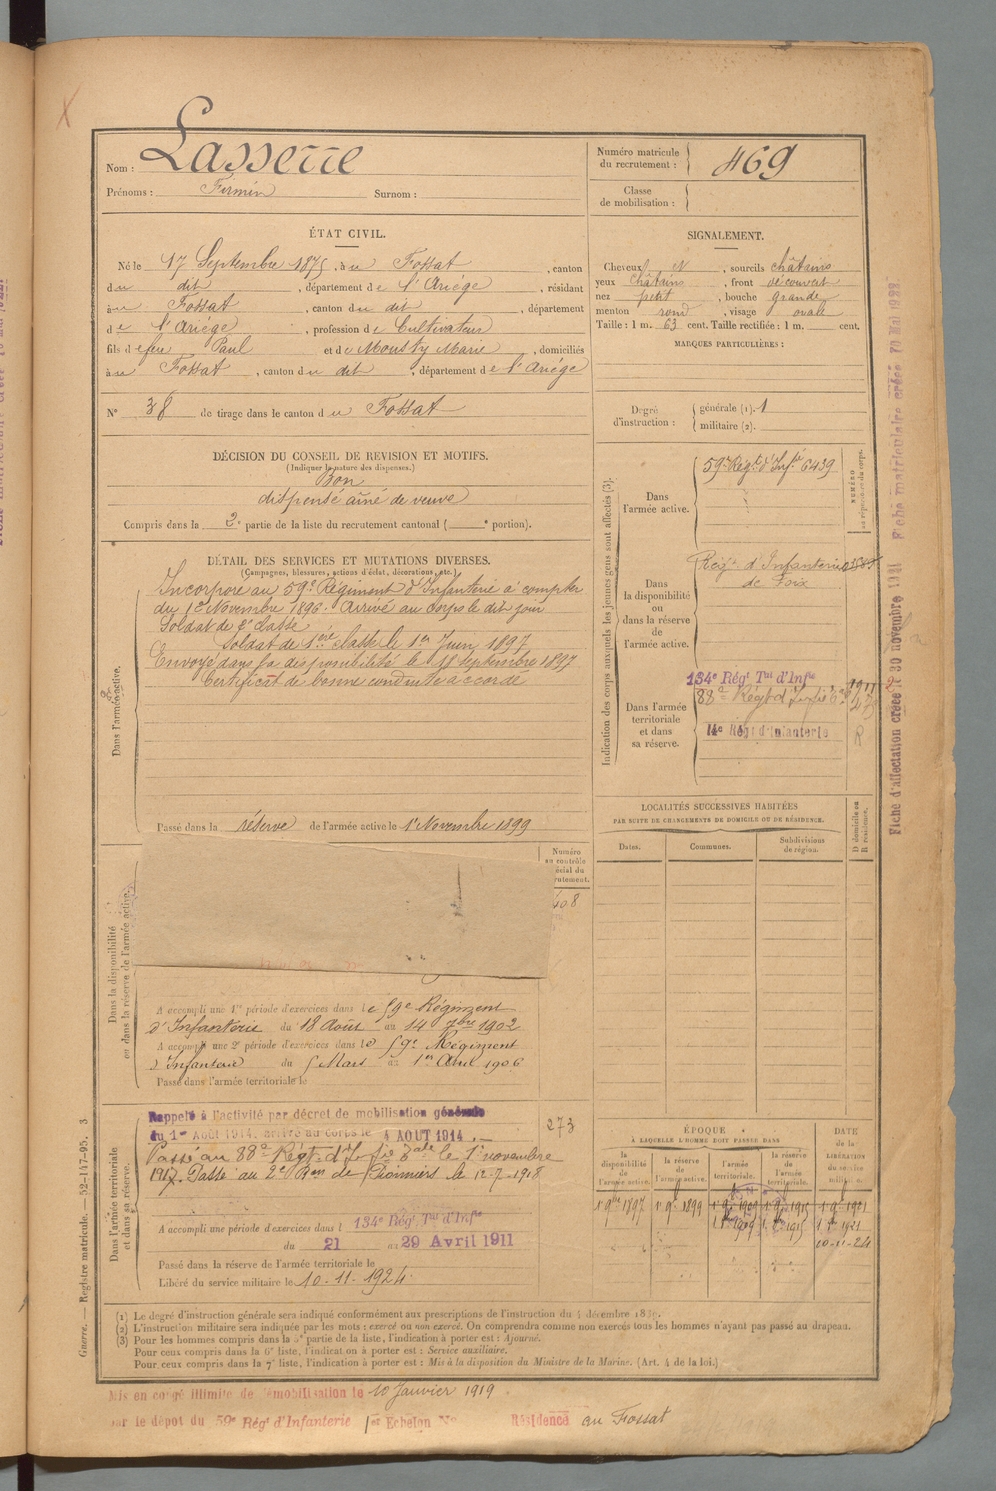 Nom : Lasserre
Prénoms : Firmin Surnom :
Numéro matricule
du recrutement : 469
Classe
de mobilisation :
ÉTAT CIVIL.
Né le 17 Septembre 1875, à u Fossat, canton
du dit, département de l'Ariège, résidant
à u Fossat, canton du dit, département
de l'Ariège, profession de Cultivateur
fils de feu Paul et de Mousty Marie, domiciliés
à u Fossat, canton du dit, département de l'Ariège
N° 38 de tirage dans le canton du Fossat
SIGNALEMENT.
Cheveux N, sourcils châtains
yeux châtains, front découvert
nez petit, bouche grande
menton rond, visage ovale
Taille : 1 m. 63 cent. Taille rectifiée : 1 m. cent.
MARQUES PARTICULIÈRES :
Degré
d'instruction :
générale (1). 1
militaire (2).
DÉCISION DU CONSEIL DE REVISION ET MOTIFS.
(Indiquer la nature des dispenses.)
Bon
dispensé aîné de veuve
Compris dans la 2e partie de la liste du recrutement cantonal ( e portion).
DÉTAIL DES SERVICES ET MUTATIONS DIVERSES.
(Campagnes, blessures, actions d'éclat, décorations, etc.)
Dans l'armée active.
Incorporé au 59e Régiment d'Infanterie à compter
du 1er Novembre 1896. Arrivé au corps le dit jour
Soldat de 2e classe
Soldat de 1ère classe le 1er Juin 1897
Envoyé dans la disponibilité le 18 septembre 1897
Certificat de bonne conduite accordé
Passé dans la réserve de l'armée active le 1er Novembre 1899
Indication des corps auxquels les jeunes gens sont affectés (3).
NUMÉRO
au répertoire du corps.
Dans
l'armée active.
59e Régt d'Infie 6439
Dans
la disponibilité
ou
dans la réserve
de
l'armée active.
Regt d'Infanterie
de Foix
Dans l'armée
territoriale
et dans
sa réserve.
134e Régt Tal d'Infie
88e Regt d'Infie
14e Régt d'Infanterie
R
LOCALITÉS SUCCESSIVES HABITÉES
PAR SUITE DE CHANGEMENTS DE DOMICILE OU DE RÉSIDENCE.
Dates.
Communes.
Subdivisions
de région.
D domicile ou
R résidence.
Dans la disponibilité
ou dans la réserve de l'armée active.
Numéro
au contrôle
spécial du
recrutement.
408
A accompli une 1re période d'exercices dans le 59e Régiment
d'Infanterie du 18 Août au 14 7bre 1902
A accompli une 2e période d'exercices dans le 59e Régiment
d'Infanterie du 5 Mars au 1er Avril 1906
Passé dans l'armée territoriale le
Dans l'armée territoriale
et dans sa réserve.
Rappelé à l'activité par décret de mobilisation générale
du 1er Août 1914, arrivé au corps le 4 AOUT 1914.
273
Passé au 88e Régt d'Infie le 1er novembre
1917. Passé au 2e Bon de Pionniers le 12-7-1918
A accompli une période d'exercices dans l 134e Régt Tal d'Infie
du 21 au 29 Avril 1911
Passé dans la réserve de l'armée territoriale le
Libéré du service militaire le 10-11-1924.
ÉPOQUE
À LAQUELLE L'HOMME DOIT PASSER DANS
la
disponibilité
de
l'armée active.
la réserve
de
l'armée active.
l'armée
territoriale.
la réserve
de
l'armée
territoriale.
DATE
de la
LIBÉRATION
du service
militaire.
1er 9bre 1897 1er 9bre 1899 1er 9bre 1909 1er 9bre 1915 1er 9bre 1921
10-11-24
(1) Le degré d'instruction générale sera indiqué conformément aux prescriptions de l'instruction du 4 décembre 1889.
(2) L'instruction militaire sera indiquée par les mots : exercé ou non exercé. On comprendra comme non exercés tous les hommes n'ayant pas passé au drapeau.
(3) Pour les hommes compris dans la 5e partie de la liste, l'indication à porter est : Ajourné.
Pour ceux compris dans la 6e liste, l'indication à porter est : Service auxiliaire.
Pour ceux compris dans la 7e liste, l'indication à porter est : Mis à la disposition du Ministre de la Marine. (Art. 4 de la loi.)
Mis en congé illimité de démobilisation le 10 Janvier 1919
par le dépôt du 59e Régt d'Infanterie 1er Echelon No Résidence au Fossat
Guerre. — Registre matricule. — 52-147-95. 3
Fiche d'affectation créée le 30 novembre 1921
Fiche matriculaire créée